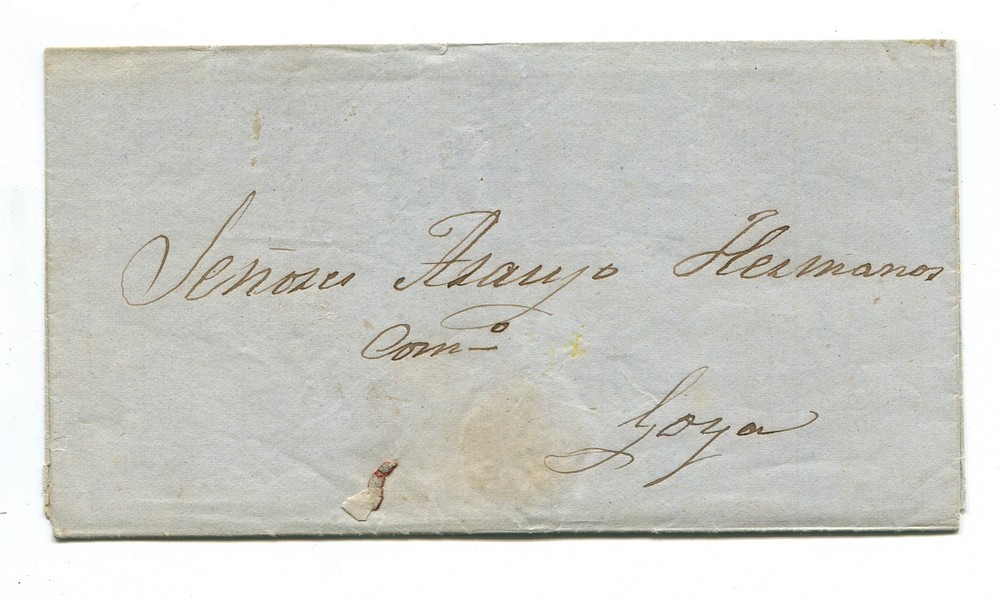 Señores Araujo Hermanos
Comº
Goya